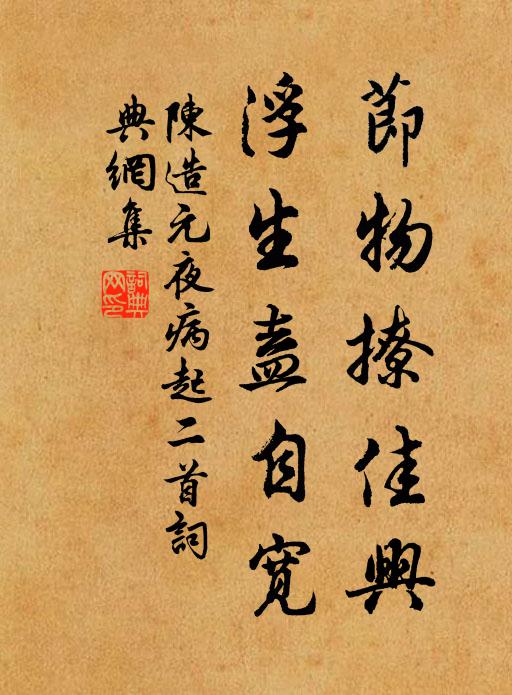 節物撩佳興
浮生盍自寬
陳造元夜病起二首詞
典網集
詞典网印